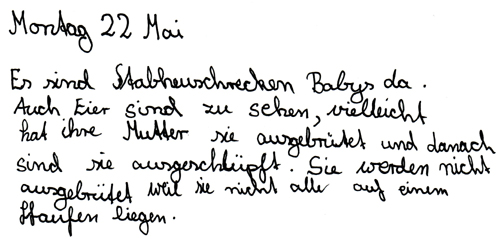 Montag 22 Mai
Es sind Stabheuschrecken Babys da.
Auch Eier sind zu sehen, vielleicht
hat ihre Mutter sie ausgebrütet und danach
sind sie ausgeschlüpft. Sie werden nicht
ausgebrütet weil sie nicht alle auf einem
Haufen liegen.